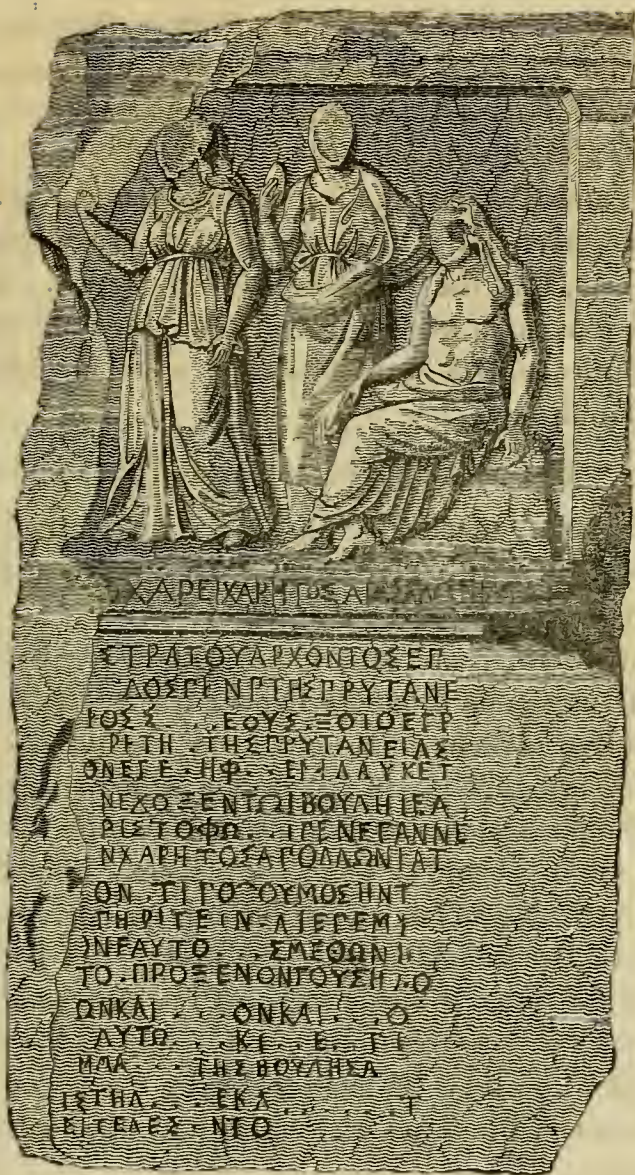 ΧΑΡΕΙΧΑΡΗΤΟΣΑΓ
ΣΤΡΑΤΟΥΑΡΧΟΝΤΟΣΕΓ
ΔΟΣΓΕΝΓΤΗΣΓΡΥΤΑΝΕ
ΡΟΣΣ...ΕΟΥΣ.ΞΟΙΟΕΓΡ
ΡΕΤΗ.ΤΗΣΓΡΥΤΑΝΕΙΑΣ
ΟΝΕΓΕ.ΗΦ..ΕΓΙΛΑΥΚΕΤ
ΝΕΔΟΞΕΝΤΩΙΒΟΥΛΗΙΕΑ
ΡΙΣΤΟΦΩ..ΙΓΕΝΕΓΑΝΝΕ
ΝΧΑΡΗΤΟΣΑΓΟΛΛΩΝΙΑΤ
ΟΝ.ΤΙΓΟΟΥΜΟΣΗΝΤ
ΓΗΡΙΤΕΙΝ.ΛΙΕΓΕΜΥ
ΟΝΕΑΥΤΟ...ΣΜΕΘΩΝΙ.
ΤΟ.ΠΡΟΞΕΝΟΝΤΟΥΣΗ).Ο
ΩΝΚΑΙ...ΟΝΚΑΙ...Ο
ΑΥΤΩ...ΚΙ..Ε..ΓΙ
ΜΜΑ...ΤΗΣΒΟΥΛΗΣΑ
ΙΣΤΗΛ...ΕΚΛ.......Τ
ΕΙΤΕΛΕΣ.ΝΤΟ